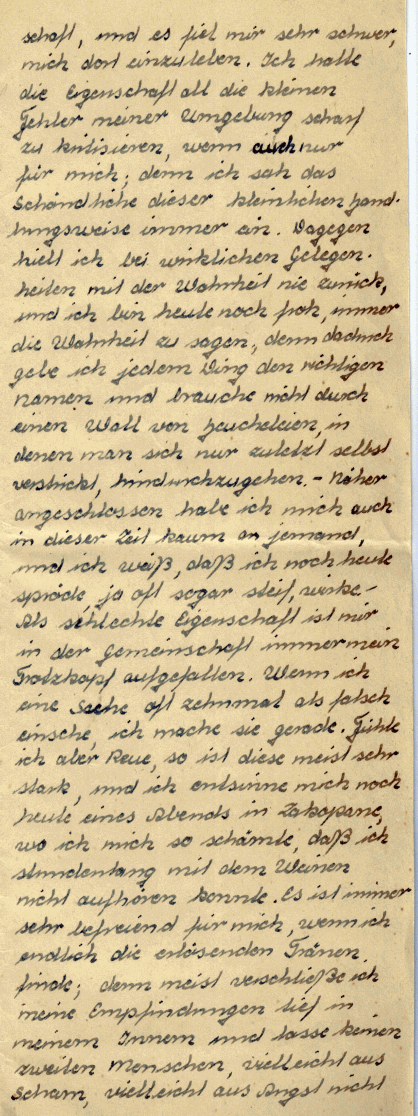 schaft, und es fiel mir sehr schwer,
mich dort einzuleben. Ich hatte
die Eigenschaft all die kleinen
Fehler meiner Umgebung scharf
zu kritisieren, wenn auch nur
für mich; denn ich sah das
Schändliche dieser kleinlichen Hand-
lungsweise immer ein. Dagegen
hielt ich bei wirklichen Gelegen-
heiten mit der Wahrheit nie zurück,
und ich bin heute noch froh, immer
die Wahrheit zu sagen, denn dadurch
gebe ich jedem Ding den richtigen
Namen und brauche nicht durch
einen Wall von Heucheleien, in
denen man sich nur zuletzt selbst
verstrickt, hindurchzugehen. - Näher
angeschlossen habe ich mich auch
in dieser Zeit kaum an jemand,
und ich weiß, daß ich noch heute
spröde, ja oft sogar steif, wirke. -
Als schlechte Eigenschaft ist mir
in der Gemeinschaft immer mein
Trotzkopf aufgefallen. Wenn ich
eine Sache oft zehnmal als falsch
einsehe, ich mache sie gerade. Fühle
ich aber Reue, so ist diese meist sehr
stark, und ich entsinne mich noch
heute eines Abends in Zakopane,
wo ich mich so schämte, daß ich
stundenlang mit dem Weinen
nicht aufhören konnte. Es ist immer
sehr befreiend für mich, wenn ich
endlich die erlösenden Tränen
finde; denn meist verschließe ich
meine Empfindungen tief in
meinem Innern und lasse keinen
zweiten Menschen, vielleicht aus
Scham, vielleicht aus Angst nicht